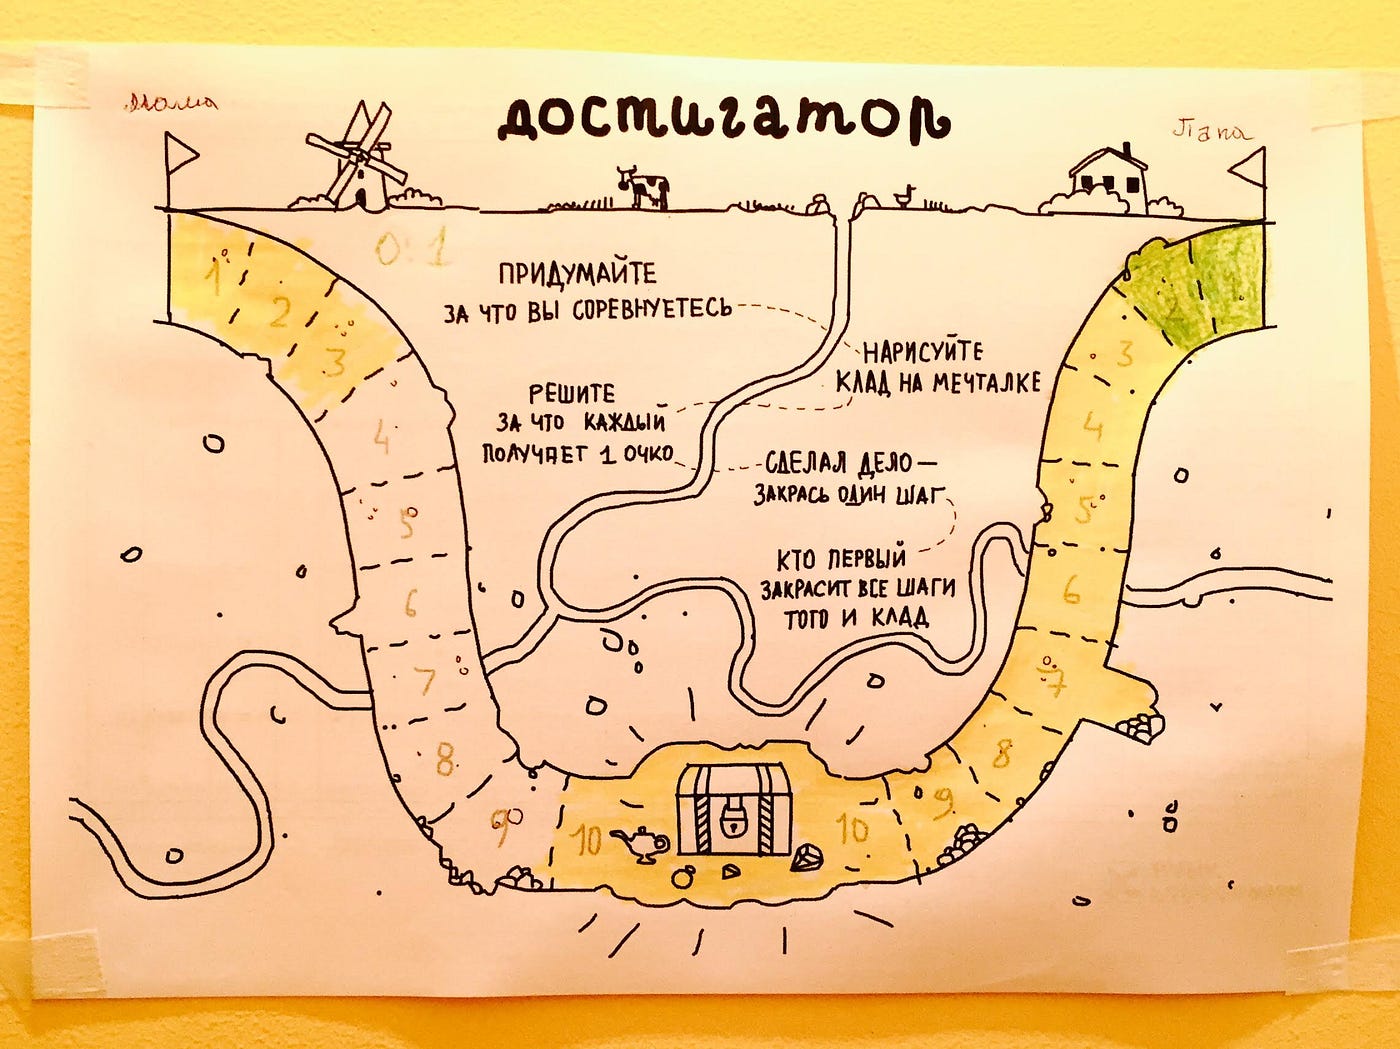 Мама
достигатор
Папа
0:1
ПРИДУМАЙТЕ
ЗА ЧТО ВЫ СОРЕВНУЕТЕСЬ
НАРИСУЙТЕ
КЛАД НА МЕЧТАЛКЕ
РЕШИТЕ
ЗА ЧТО КАЖДЫЙ
ПОЛУЧАЕТ 1 ОЧКО
СДЕЛАЛ ДЕЛО —
ЗАКРАСЬ ОДИН ШАГ
КТО ПЕРВЫЙ
ЗАКРАСИТ ВСЕ ШАГИ
ТОГО И КЛАД
1
2
3
4
5
6
7
8
9
10
2
3
4
5
6
7
8
9
10